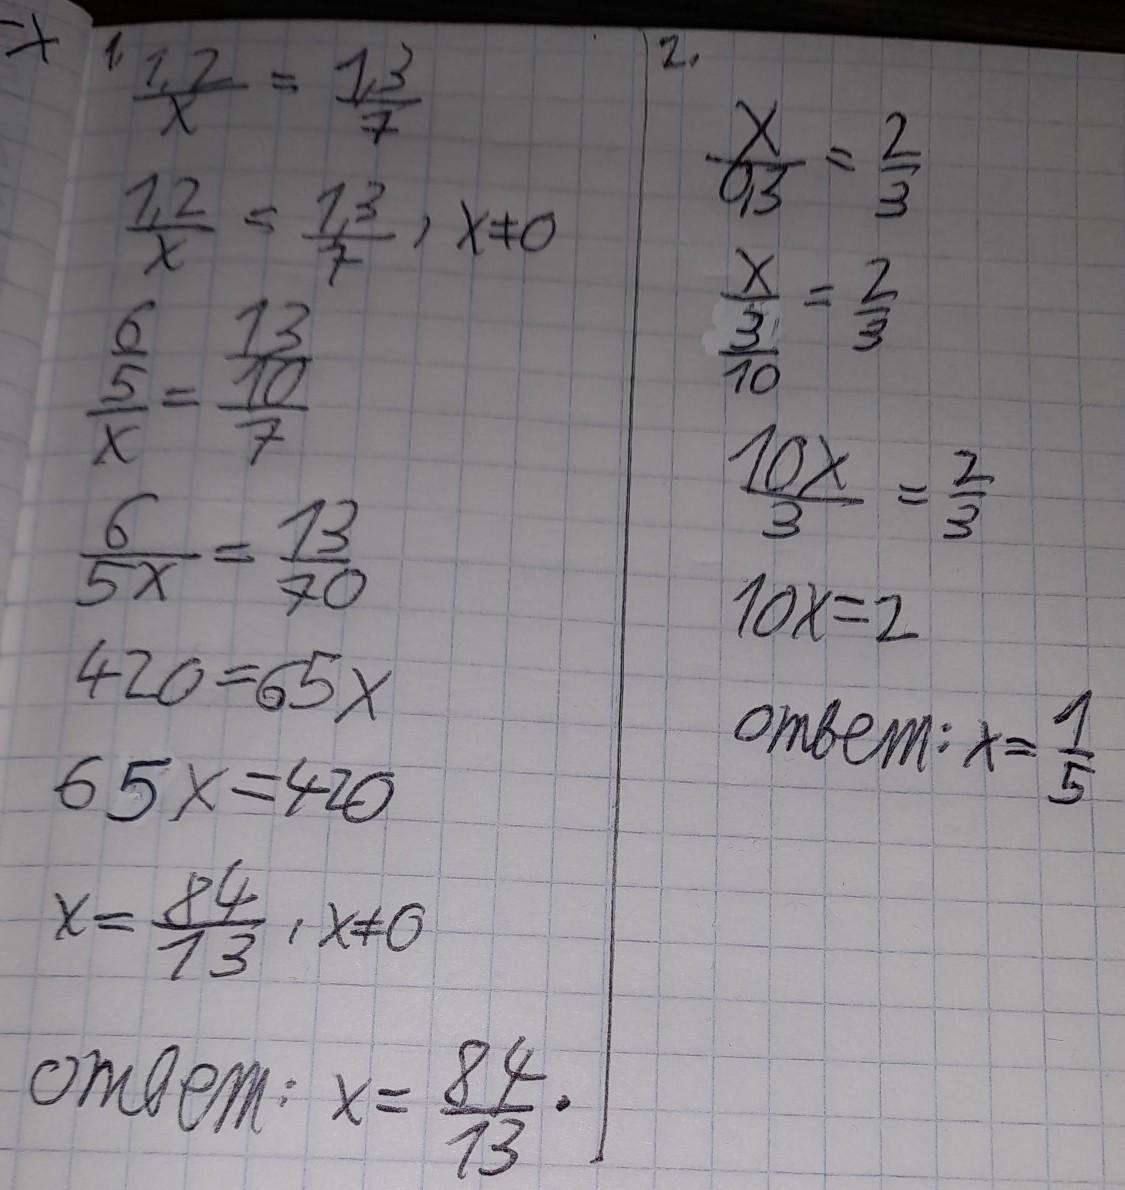 -x
1.
1,2/x = 1,3/7
1,2/x = 1,3/7, x≠0
6/5/x = 13/10/7
6/5x = 13/70
420=65x
65x=420
x= 84/13, x≠0
ответ: x= 84/13.
2.
x/0,3 = 2/3
x/3/10 = 2/3
10x/3 = 2/3
10x=2
ответ: x= 1/5